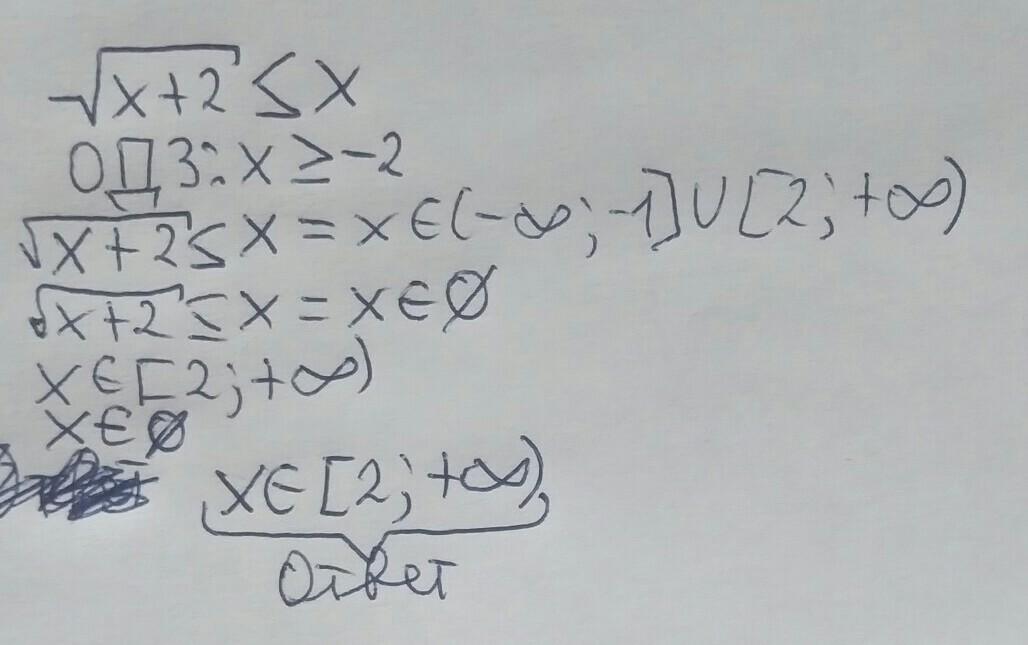 √x+2 ≤ x
ОДЗ: x ≥ -2
√x+2 ≤ x = x ∈ (-∞; -1] ∪ [2; +∞)
√x+2 ≤ x = x ∈ ∅
x ∈ [2; +∞)
x ∈ ∅
x ∈ [2; +∞)
Ответ